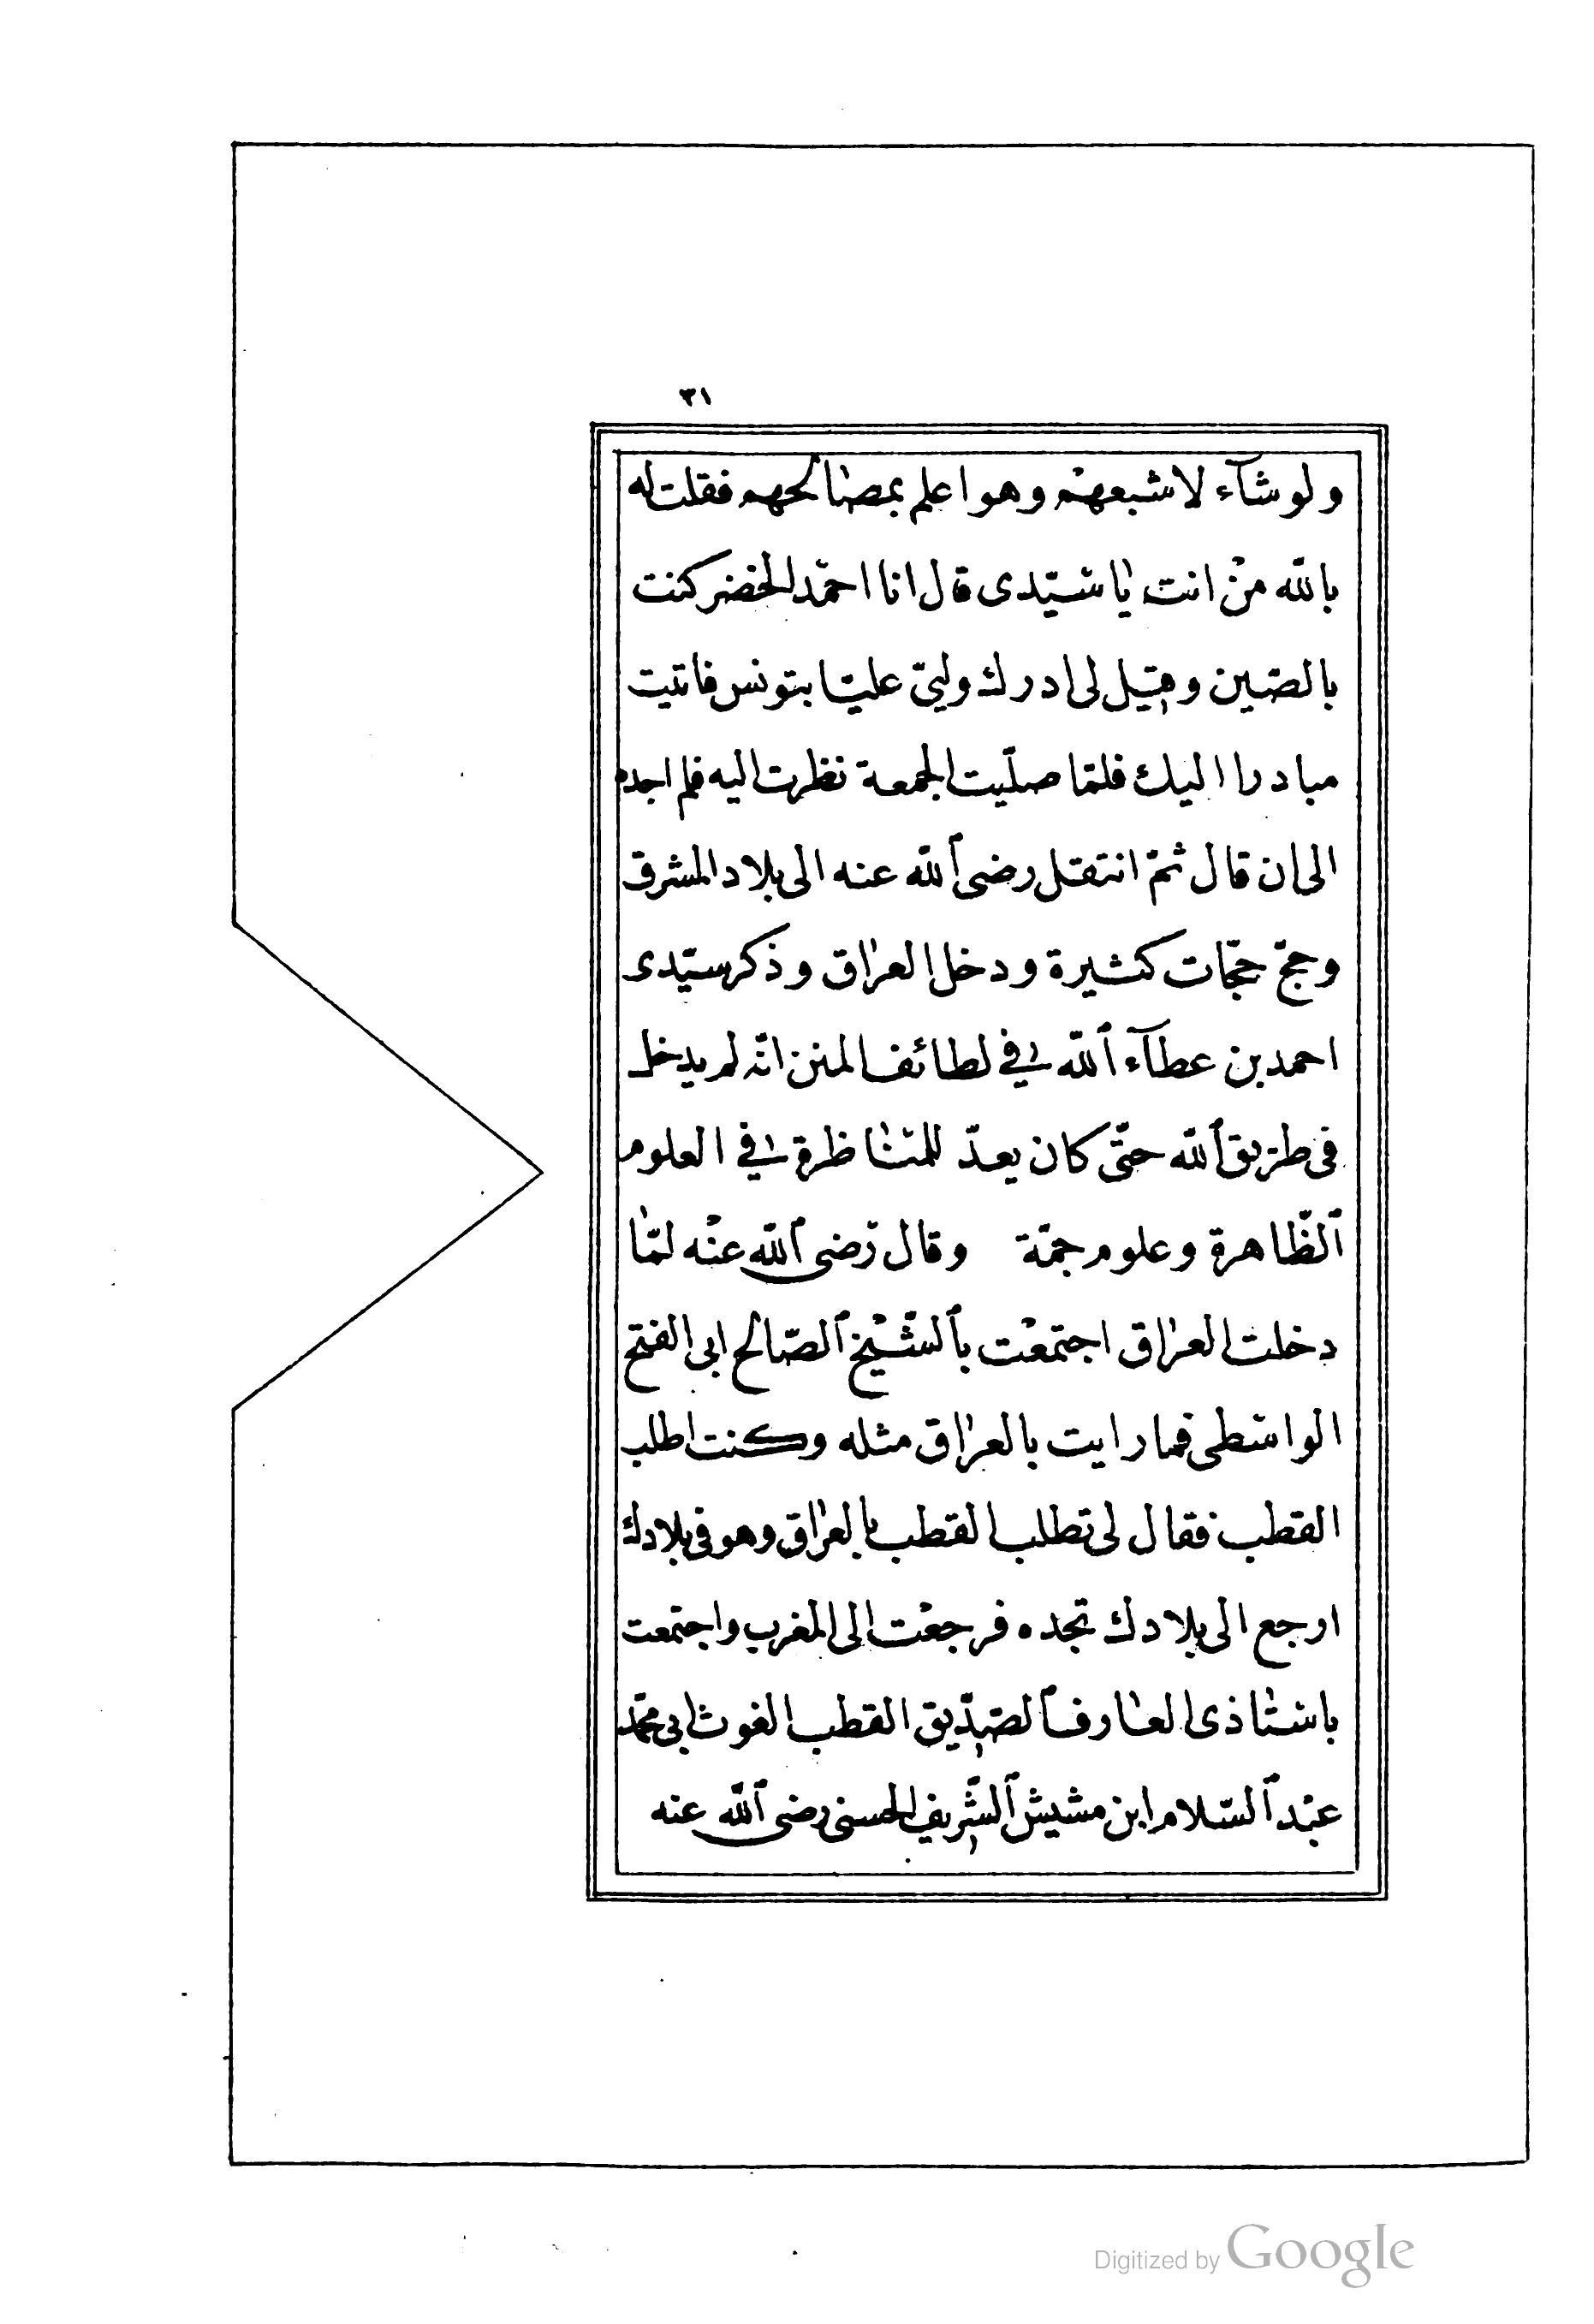 ٣١
ولو شآء لاشبعهم وهو اعلم بمصالحهم فقلت له
بالله من انت يا سيّدى قال انا احمد الخضر كنت
بالصّين وقيل لى ادرك وليّ عليّا بتونس فاتيت
مبادرا اليك فلمّا صلّيت الجمعة نظرت اليه فلم اجده
الى ان قال ثمّ انتقل رضى ٱللّه عنه الى بلاد المشرق
وحجّ حجّات كثيرة ودخل العراق وذكر سيّدى
احمد بن عطآء ٱللّه في لطائف المنن انّه لم يدخل
فى طريق ٱللّه حتّى كان يعدّ للمناظرة في العلوم
ٱلظّاهرة وعلوم جمّة وقال رضى ٱللّه عنه لمّا
دخلت العراق اجتمعت بٱلشّيخ ٱلصّالح ابى الفتح
الواسطى فما رايت بالعراق مثله وكنت اطلب
القطب فقال لى تطلب القطب بالعراق وهو فى بلادك
ارجع الى بلادك تجده فرجعت الى المغرب واجتمعت
باستاذى العارف ٱلصّدّيق القطب الغوث ابى محمّد
عبد ٱلسّلام ابن مشيش ٱلشّريف الحسنى رضى ٱللّه عنه
Digitized by Google